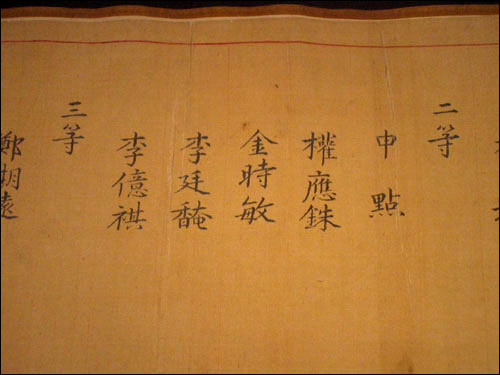 二等
申 點
權應銖
金時敏
李廷馣
李億祺
三等
鄭期遠